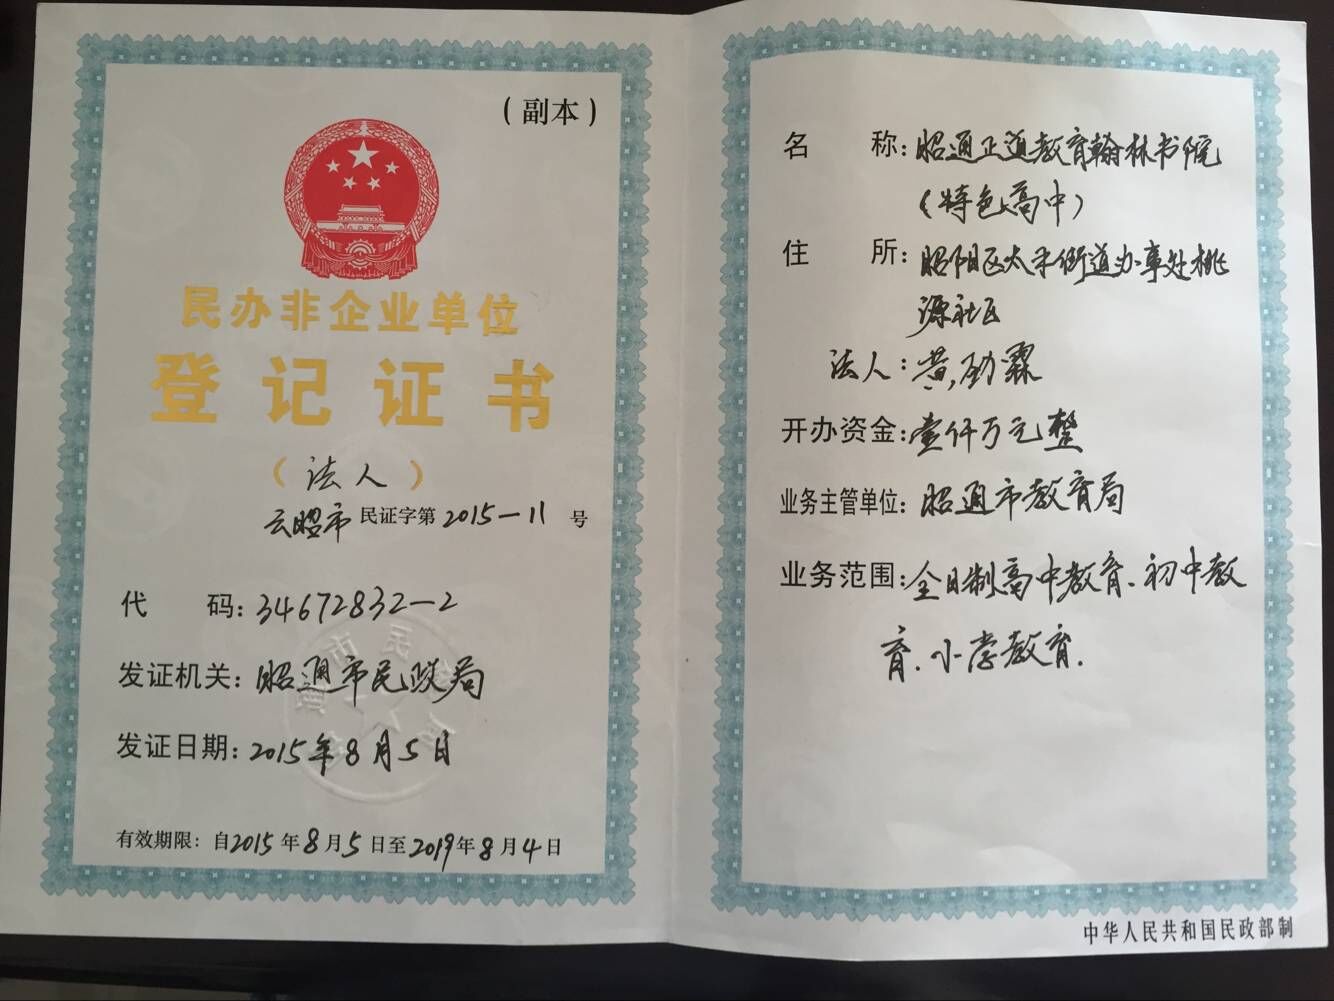 （副本）
民办非企业单位
登记证书
（法人）
云昭市民证字第2015—11号
代码：34672832—2
发证机关：昭通市民政局
发证日期：2015年8月5日
有效期限：自2015年8月5日至2019年8月4日
名称：昭通正道教育翰林书院
（特色高中）
住所：昭阳区太平街道办事处桃
源社区
法人：黄劲霖
开办资金：壹仟万元整
业务主管单位：昭通市教育局
业务范围：全日制高中教育、初中教
育、小学教育.
中华人民共和国民政部制